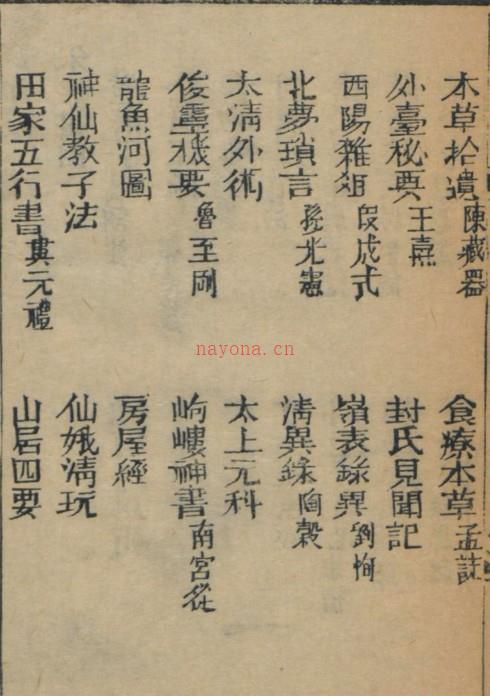 本草拾遺 陳藏器 食療本草 孟詵
外臺秘要 王熹 封氏見聞記
酉陽雜俎 段成式 嶺表錄異 劉恂
北夢瑣言 孫光憲 清異錄 陶穀
太清外術 太上元科
俊靈機要 魯至剛 岣嶁神書 南宮從
龍魚河圖 房屋經
神仙教子法 仙娥清玩
田家五行書 婁元禮 山居四要
nayona.cn